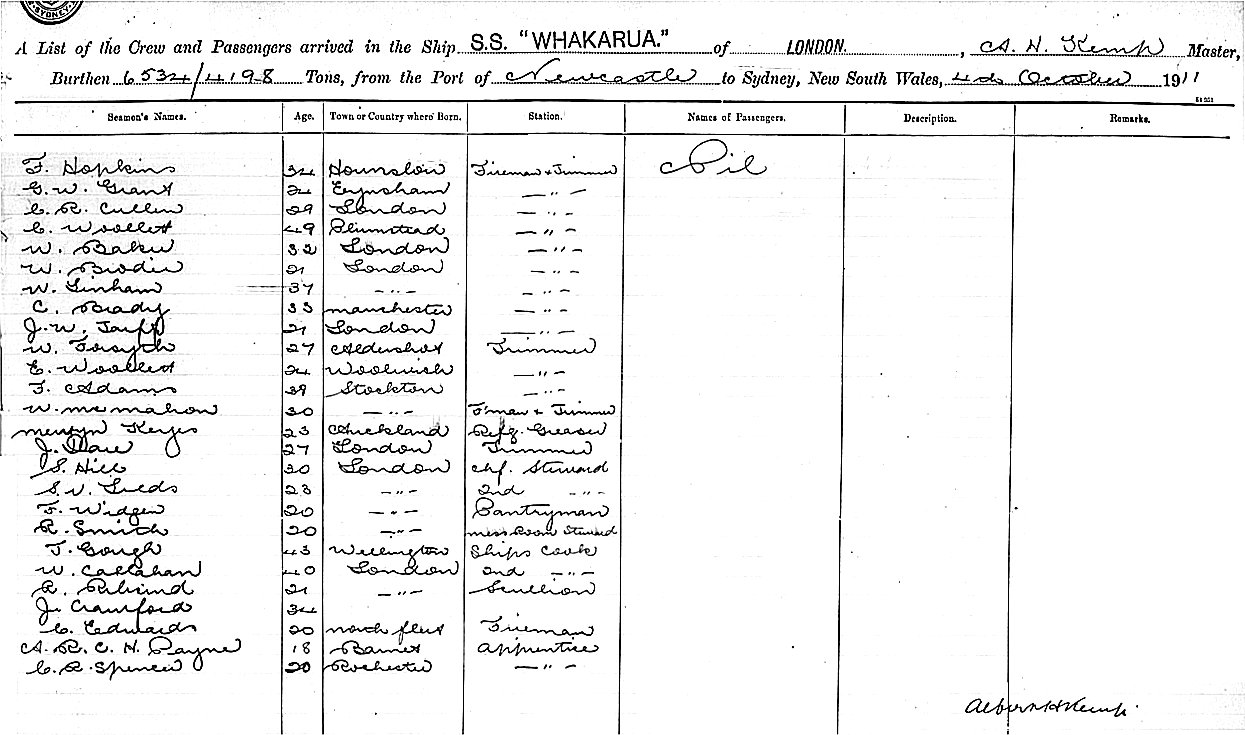 SYDNEY
A List of the Crew and Passengers arrived in the Ship S.S. "WHAKARUA." of LONDON. , A. H. Kemp Master,
Burthen 6534/4198 Tons, from the Port of Newcastle to Sydney, New South Wales, 4th October 1911
Seamen's Names. Age. Town or Country where Born. Station. Names of Passengers. Description. Remarks.
F. Hopkins 34 Hounslow Fireman & Trimmer Nil
G. W. Grant 24 Eynsham — " —
C. R. Cullen 29 London — " —
C. Woollett 49 Plumstead — " —
W. Baker 32 London — " —
W. Brodie 21 London — " —
W. Linham 37 — " — — " —
C. Brady 33 Manchester — " —
J. W. 21 London — " —
W. Forsyth 27 Aldershot Trimmer
E. Woollett 24 Woolwich — " —
F. Adams 39 Stockton — " —
W. McMahon 30 — " — F'man & Trimmer
Mervyn Keyes 23 Auckland Refg. Greaser
J. 27 London Trimmer
S. Hill 20 London Chf. Steward
S. V. Leeds 23 — " — 2nd — " —
F. Widgen 20 — " — Pantryman
R. Smith 20 — " — Mess Room Steward
T. Gough 43 Wellington Ships Cook
W. Callahan 40 London 2nd — " —
R. 21 — " — Scullion
J. Crawford 34
C. Edwards 20 North fleet Fireman
A. R. C. H. Payne 18 Barnet Apprentice
C. R. Spencer 20 Rochester — " —
Albert H Kemp.